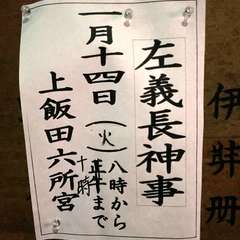 伊弉册
左義長神事
一月十四日(火)
八時から
正午まで
十時
上飯田六所宮